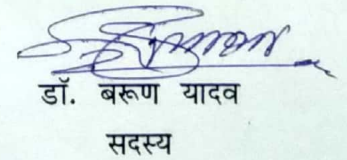 डॉ. बरूण यादव
सदस्य